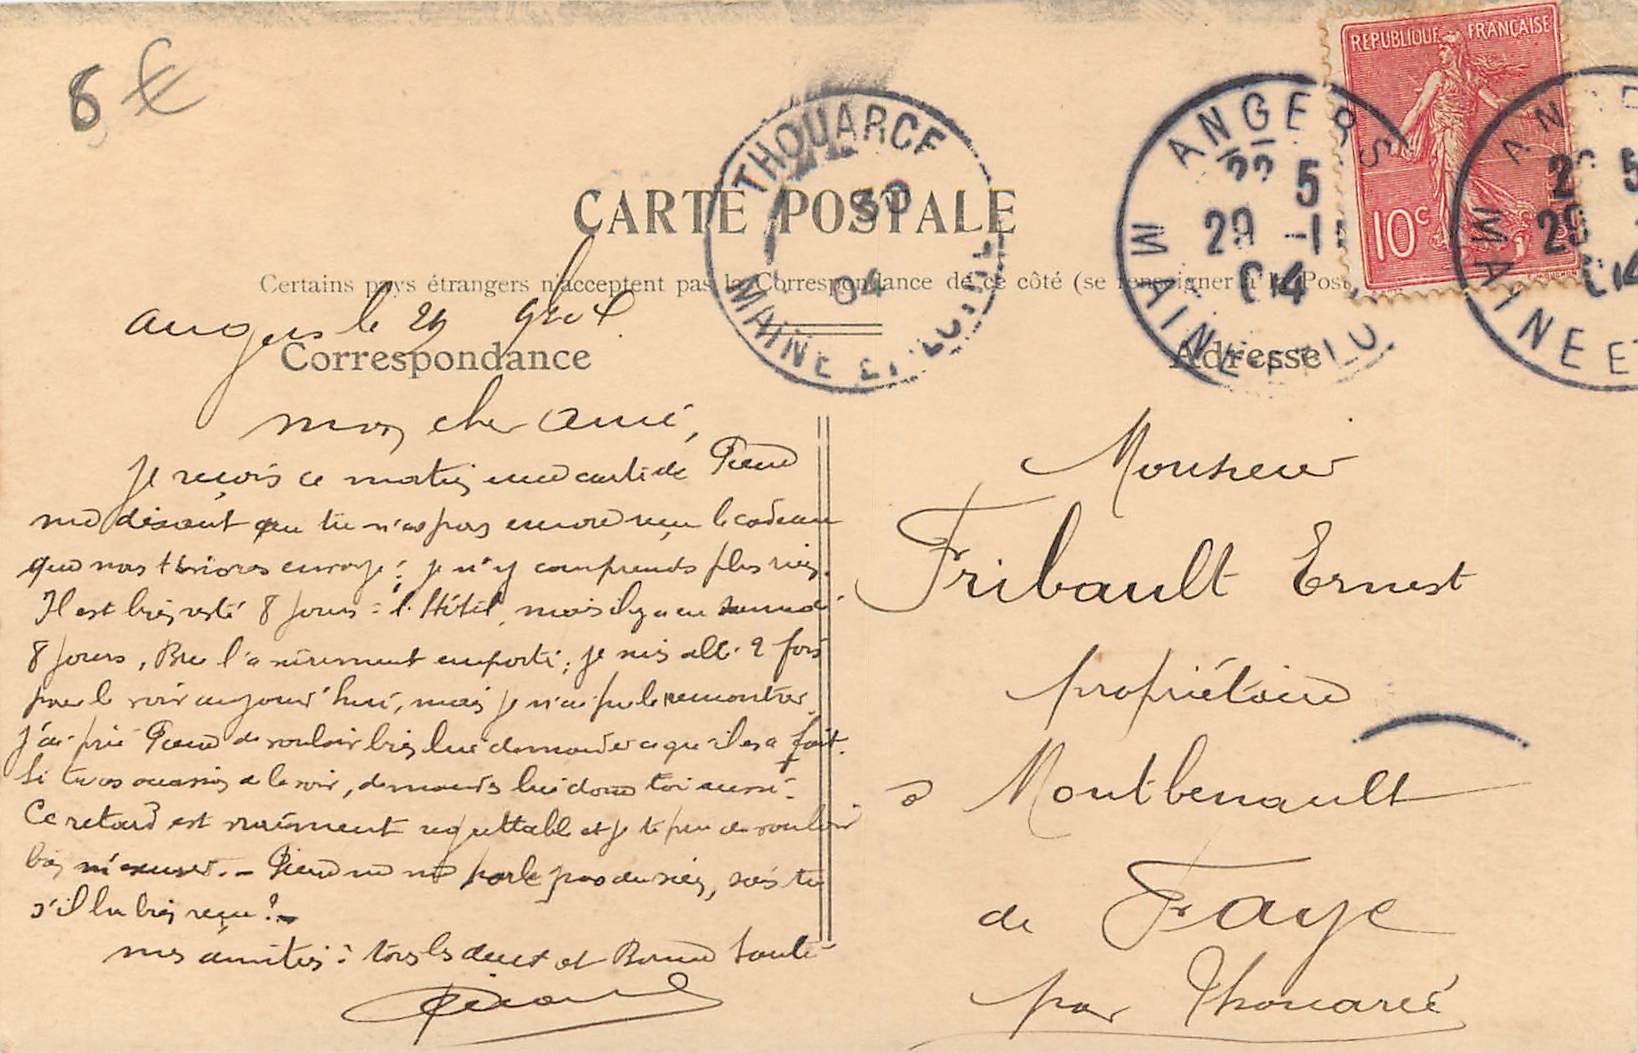 8 €
RÉPUBLIQUE FRANÇAISE
10c
THOUARCE
30
04
MAINE ET LOIRE
ANGERS
22 5
29 -11
04
MAINE ET LOI
ANGE
22 5
29
04
MAINE ET
CARTE POSTALE
Certains pays étrangers n'acceptent pas la Correspondance de ce côté (se renseigner à la Post
Angers le 29
Correspondance
Adresse
mon cher Aimé,
Je reçois ce matin une carte de
me disant que tu n'as pas encore reçu le cadeau
que nous t'avions envoyé; je n'y comprends plus rien.
Il est bien resté 8 jours à l'Hôtel, mais il y a eu
8 jours, l'a sûrement emporté; je suis allé 2 fois
pour le voir aujourd'hui, mais je n'ai pu le rencontrer.
j'ai prié de vouloir bien lui demander ce qu'il en a fait.
Si tu as occasion de le voir, demande lui donc toi aussi.
Ce retard est vraiment regrettable et je te prie de vouloir
bien m'excuser. — ne me parle pas du sien, sais tu
s'il l'a bien reçu? —
mes amitiés à tous les deux et Bonne Santé
Monsieur
Fribault Ernest
propriétaire
à Montbenault
de Faye
par Thouarcé